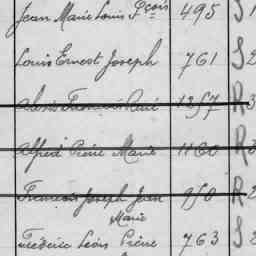 Jean Marie Louis Fçois 495 S 1
Louis Ernest Joseph 761 S 2
Alexis François René 1257 R 3
Alfred Pierre Marie 1160 R 3
François Joseph Jean 950 R 2
Marie
Frédéric Léon Pierre 763 S 2